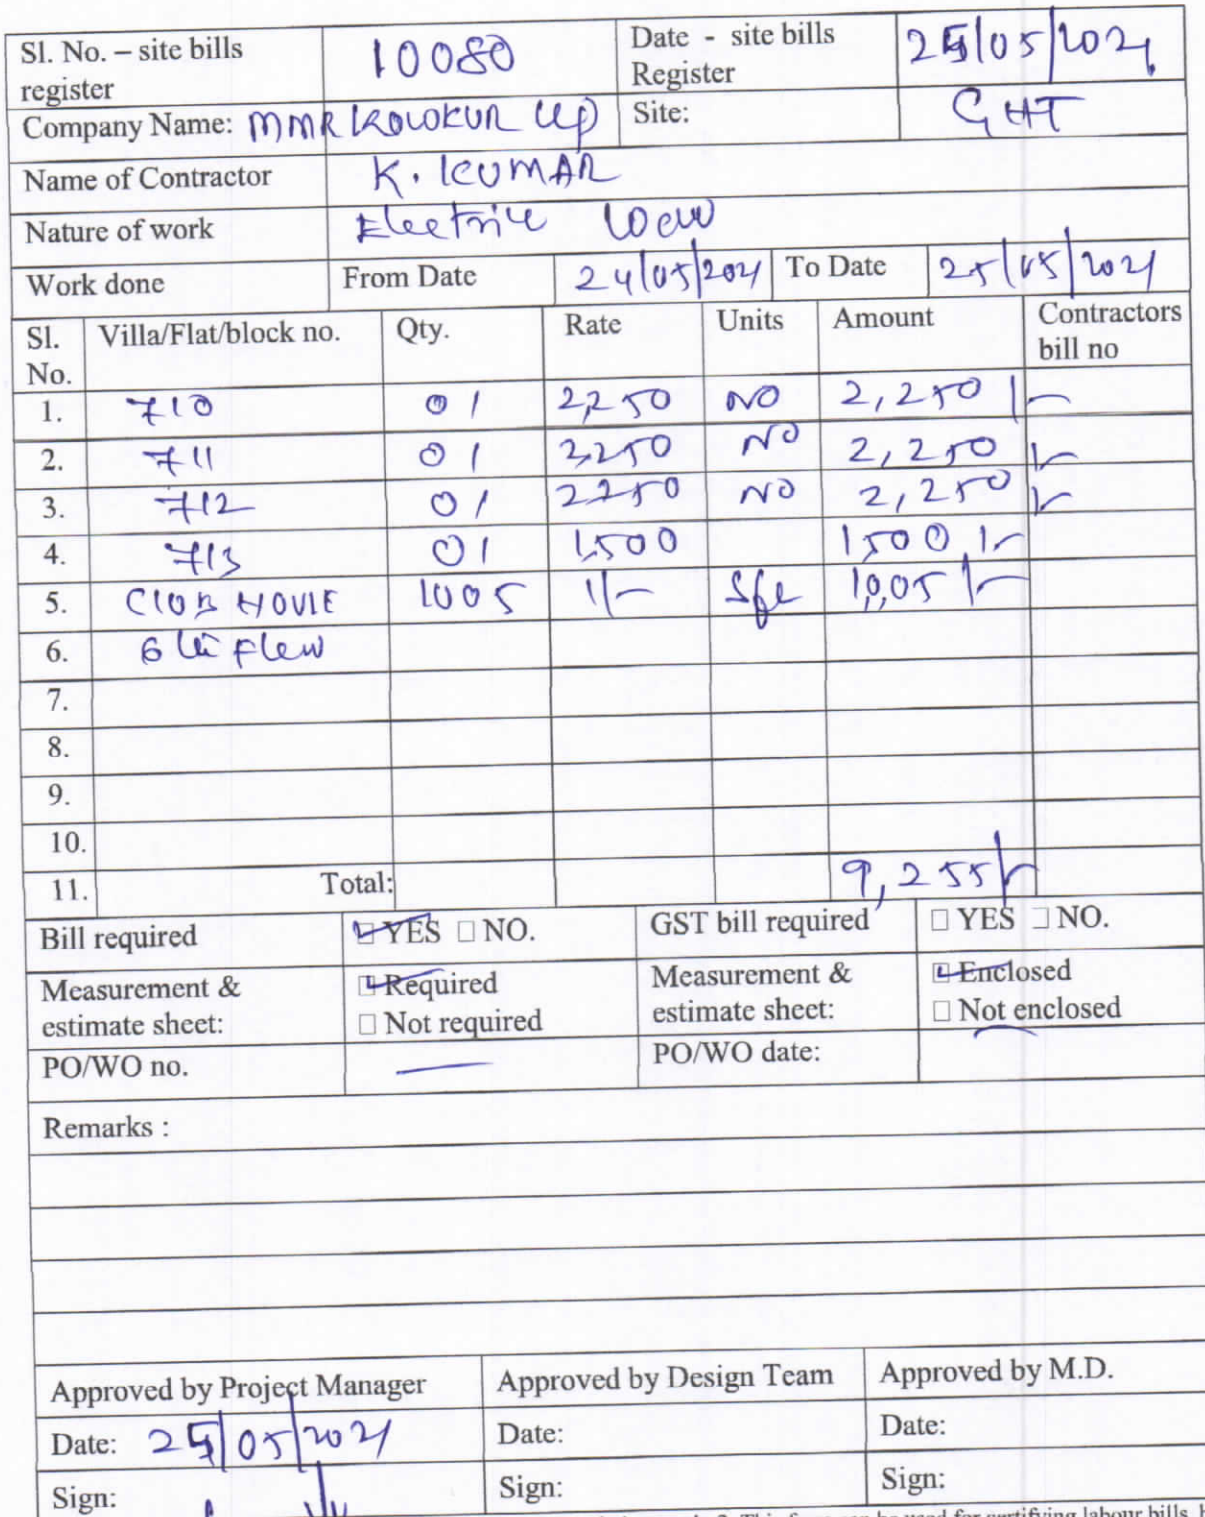 Sl. No. – site bills register 10080 Date - site bills Register 25/05/2021
Company Name: MMR KOLOKUR LLP Site: GHT
Name of Contractor K. KUMAR
Nature of work Electric
Work done From Date 24/05/2021 To Date 25/05/2021
Sl. No. Villa/Flat/block no. Qty. Rate Units Amount Contractors bill no
1. 710 01 2,250 NO 2,250/-
2. 711 01 2,250 NO 2,250/-
3. 712 01 2250 NO 2,250/-
4. 713 01 1,500 1,500/-
5. CLUB HOUSE 1005 1/- Sft 10,05/-
6. 6th
7.
8.
9.
10.
11. Total: 9,255/-
Bill required ☑ YES □ NO. GST bill required □ YES □ NO.
Measurement & estimate sheet: ☑ Required □ Not required Measurement & estimate sheet: ☑ Enclosed □ Not enclosed
PO/WO no. — PO/WO date:
Remarks :
Approved by Project Manager Approved by Design Team Approved by M.D.
Date: 25/05/2021 Date: Date:
Sign: Sign: Sign:
This form can be used for certifying labour bills,